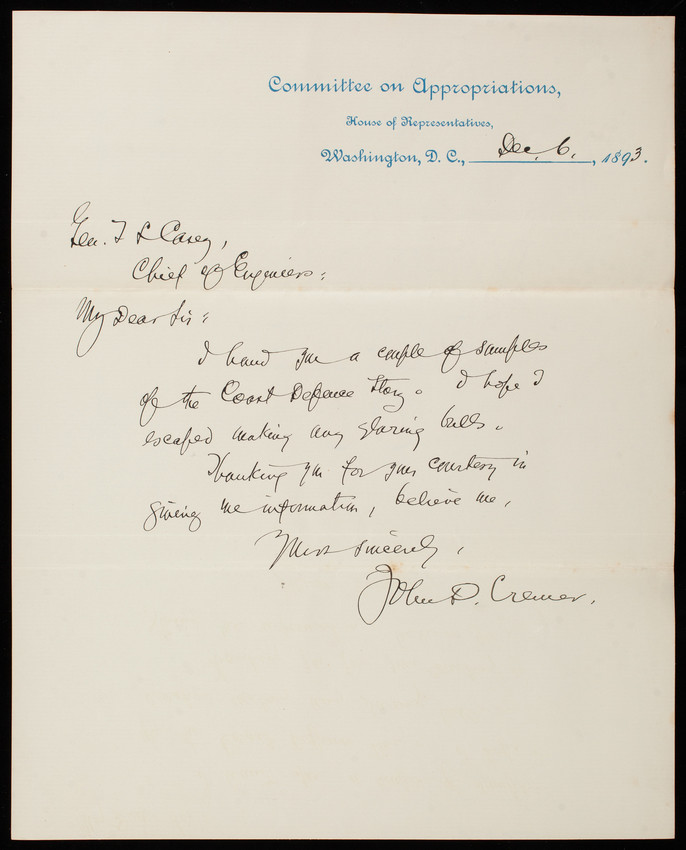 Committee on Appropriations,
House of Representatives,
Washington, D. C., Dec. 6, 1893.
Gen. T L Casey,
Chief of Engineers:
My Dear Sir:
I hand you a couple of samples
of the Coast Defence story. I hope I
escaped making any glaring bulls.
Thanking you for your courtesy in
giving me information, believe me,
Yours sincerely,
John D. Cremer.